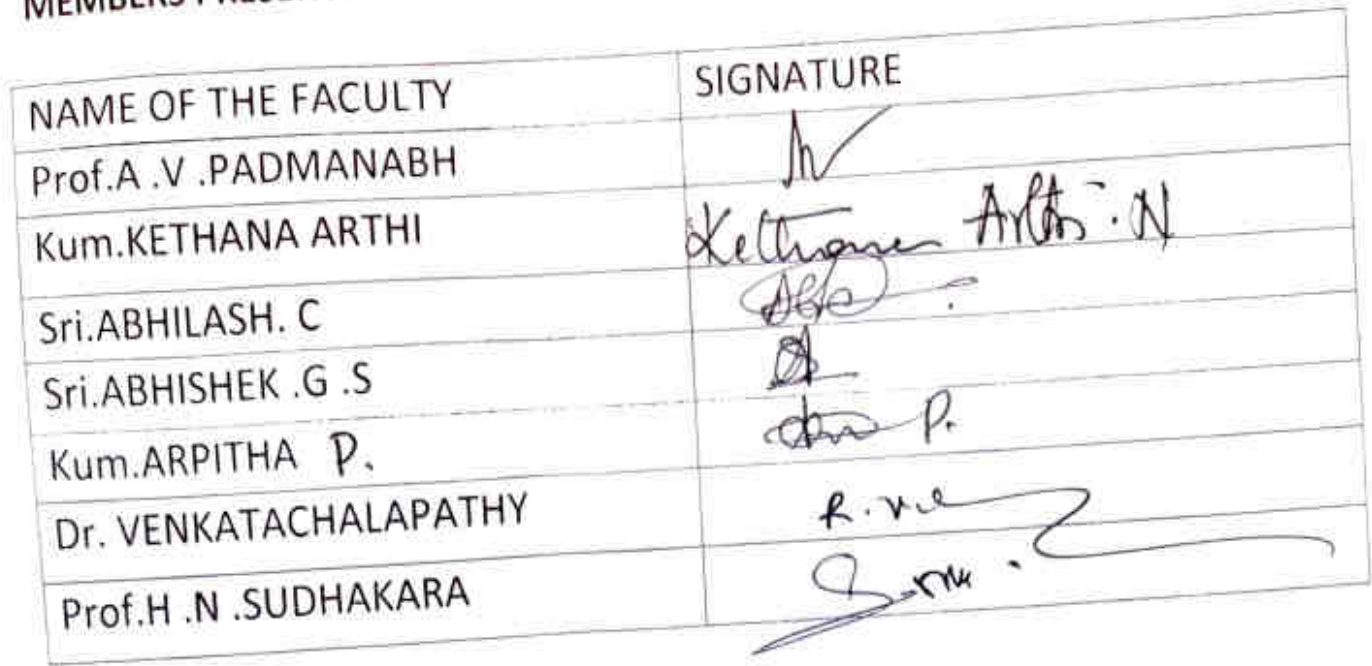 MEMBERS PRESENT
NAME OF THE FACULTY SIGNATURE
Prof.A .V .PADMANABH
Kum.KETHANA ARTHI Kethana Arthi . N
Sri.ABHILASH. C
Sri.ABHISHEK .G .S
Kum.ARPITHA P. P.
Dr. VENKATACHALAPATHY
Prof.H .N .SUDHAKARA